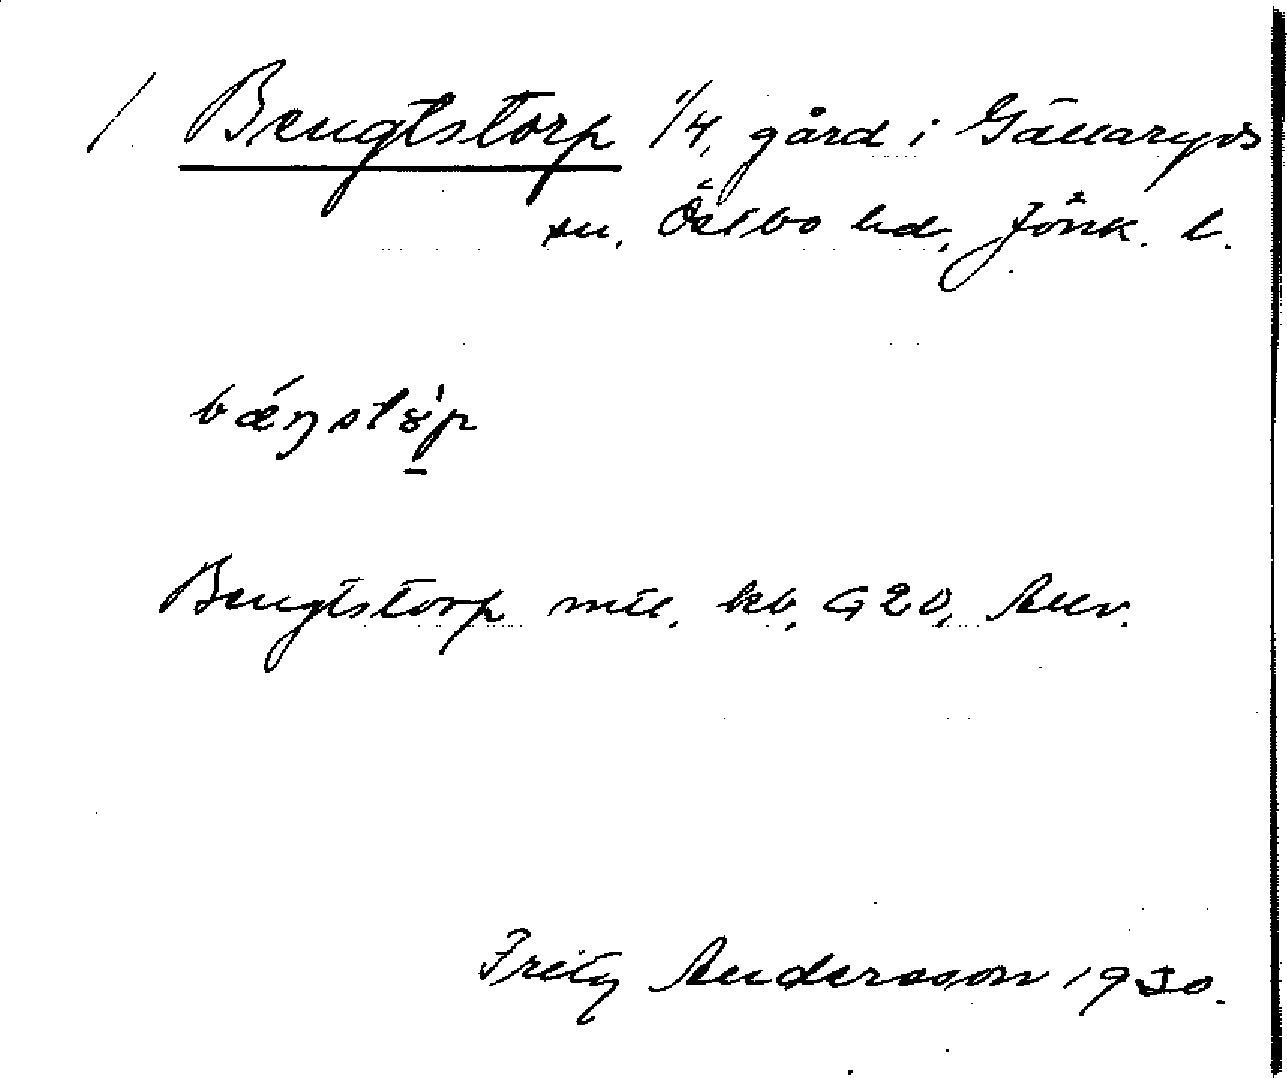 / Bengtstorp 1/4, gård i Gällaryds
sn. Östbo hd, Jönk. l.
Bengtstorp mtl. kb, G20, Allv.
Fritz Andersson 1930.